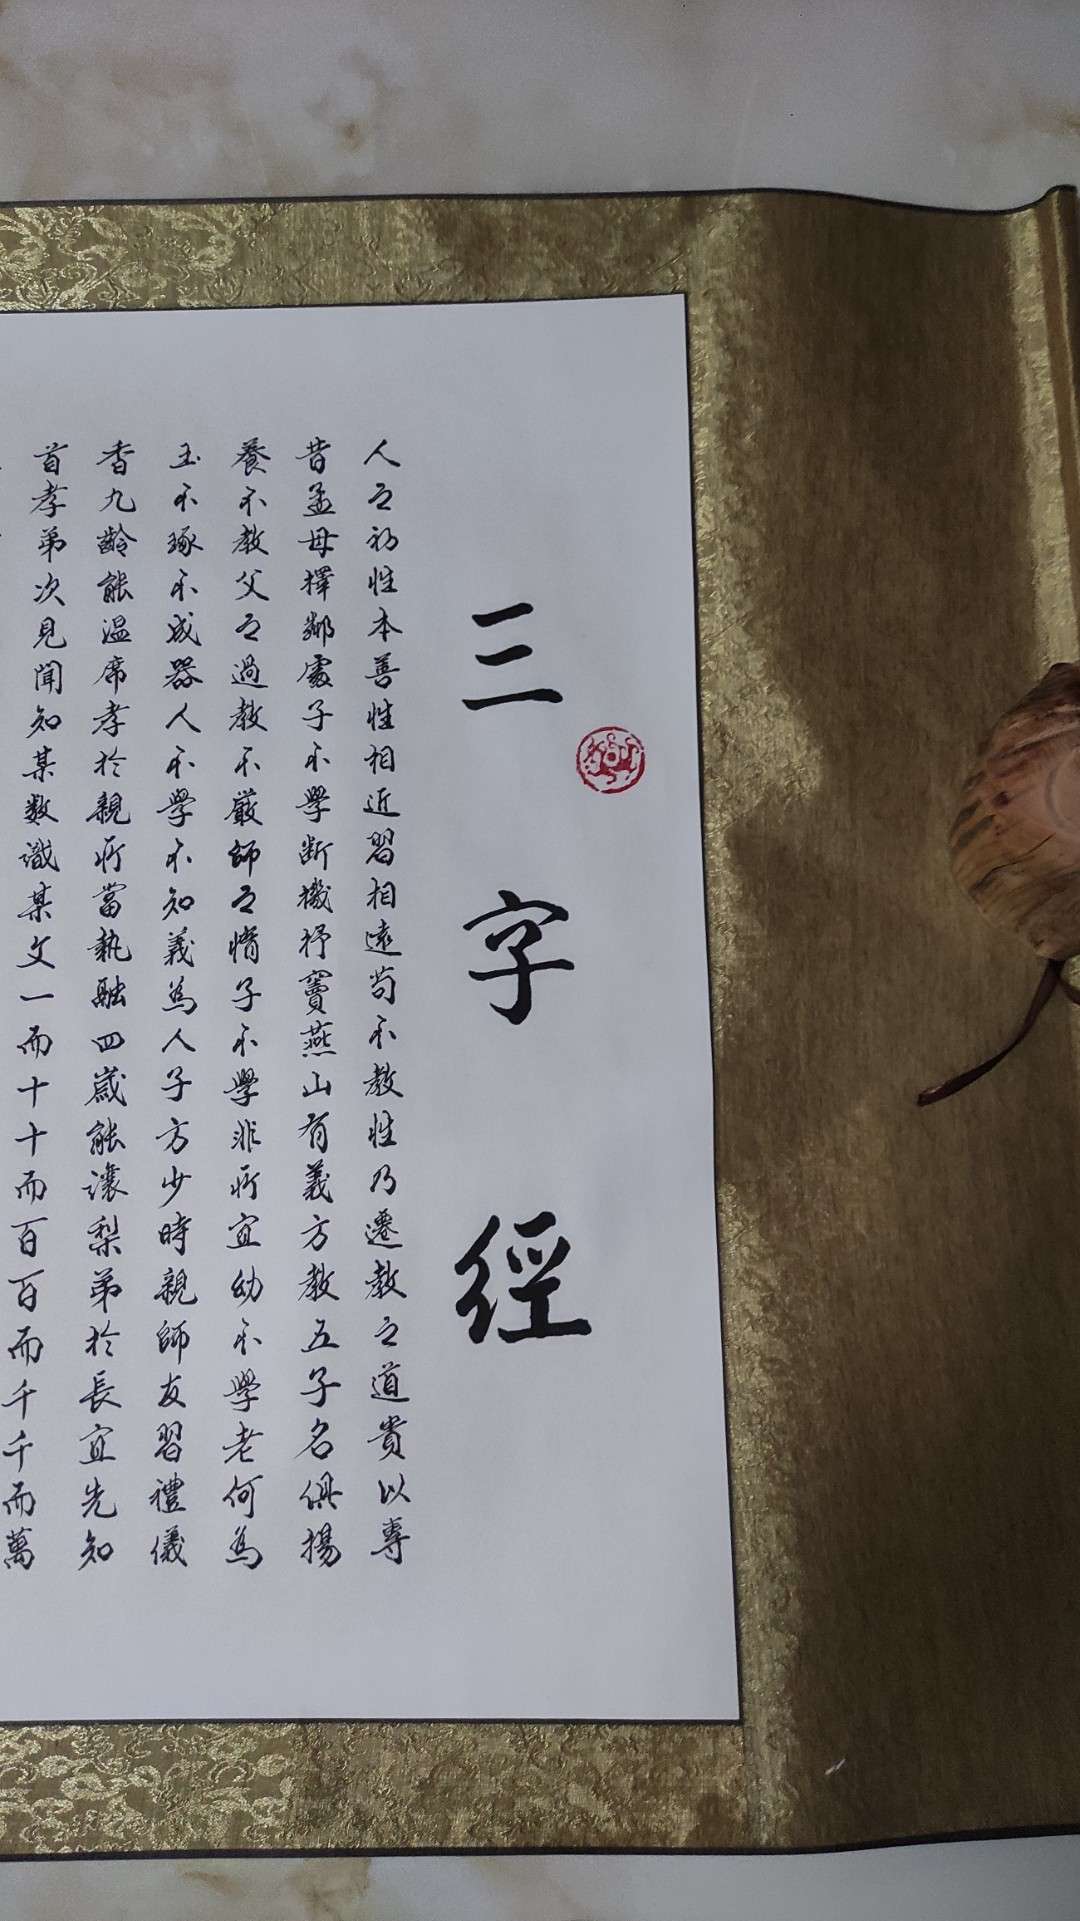 三字經
人之初性本善性相近習相遠茍不教性乃遷教之道貴以專
昔孟母擇鄰處子不學斷機杼竇燕山有義方教五子名俱揚
養不教父之過教不嚴師之惰子不學非所宜幼不學老何為
玉不琢不成器人不學不知義為人子方少時親師友習禮儀
香九齡能溫席孝於親所當執融四歲能讓梨弟於長宜先知
首孝弟次見聞知某數識某文一而十十而百百而千千而萬